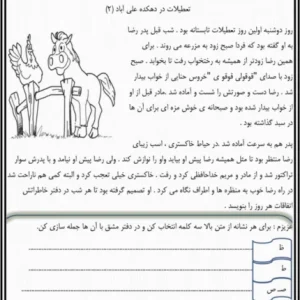 تعطیلات در دهکده علی آباد (۲)
روز دوشنبه اولین روز تعطیلات تابستانه بود . شب قبل پدر رضا
به او گفته بود که فردا صبح زود به مزرعه می روند . برای
همین رضا زودتر از همیشه به رختخواب رفت تا بخوابد. صبح
زود با صدای "قوقولی قوقو ی "خروس حنایی از خواب بیدار
شد . رضا دست و صورتش را شست و آماده شد .مادر قبل از او
از خواب بیدار شده بود و صبحانه ی خوش مزه ای برای آن ها
در سبد گذاشته بود .
پدر هم به سرعت آماده شد .در حیاط خاکستری ، اسب زیبای
رضا منتظر بود تا مثل همیشه رضا پیش او بیاید واو را نوازش کند . ولی رضا پیش او نیامد و با پدرش سوار
تراکتور شد و از مادر و مریم خداحافظی کرد و رفت . خاکستری خیلی تعجب کرد و البته کمی هم ناراحت شد
در راه رضا خوب به منظره ها و اطراف نگاه می کرد . او تصمیم گرفته بود تا هر شب در دفتر خاطراتش
اتفاقات هر روز را بنویسد .
عزیزم : برای هر نشانه از متن بالا سه کلمه انتخاب کن و در دفتر مشق با آن ها جمله سازی کن.
ظ
ط
صـ ص